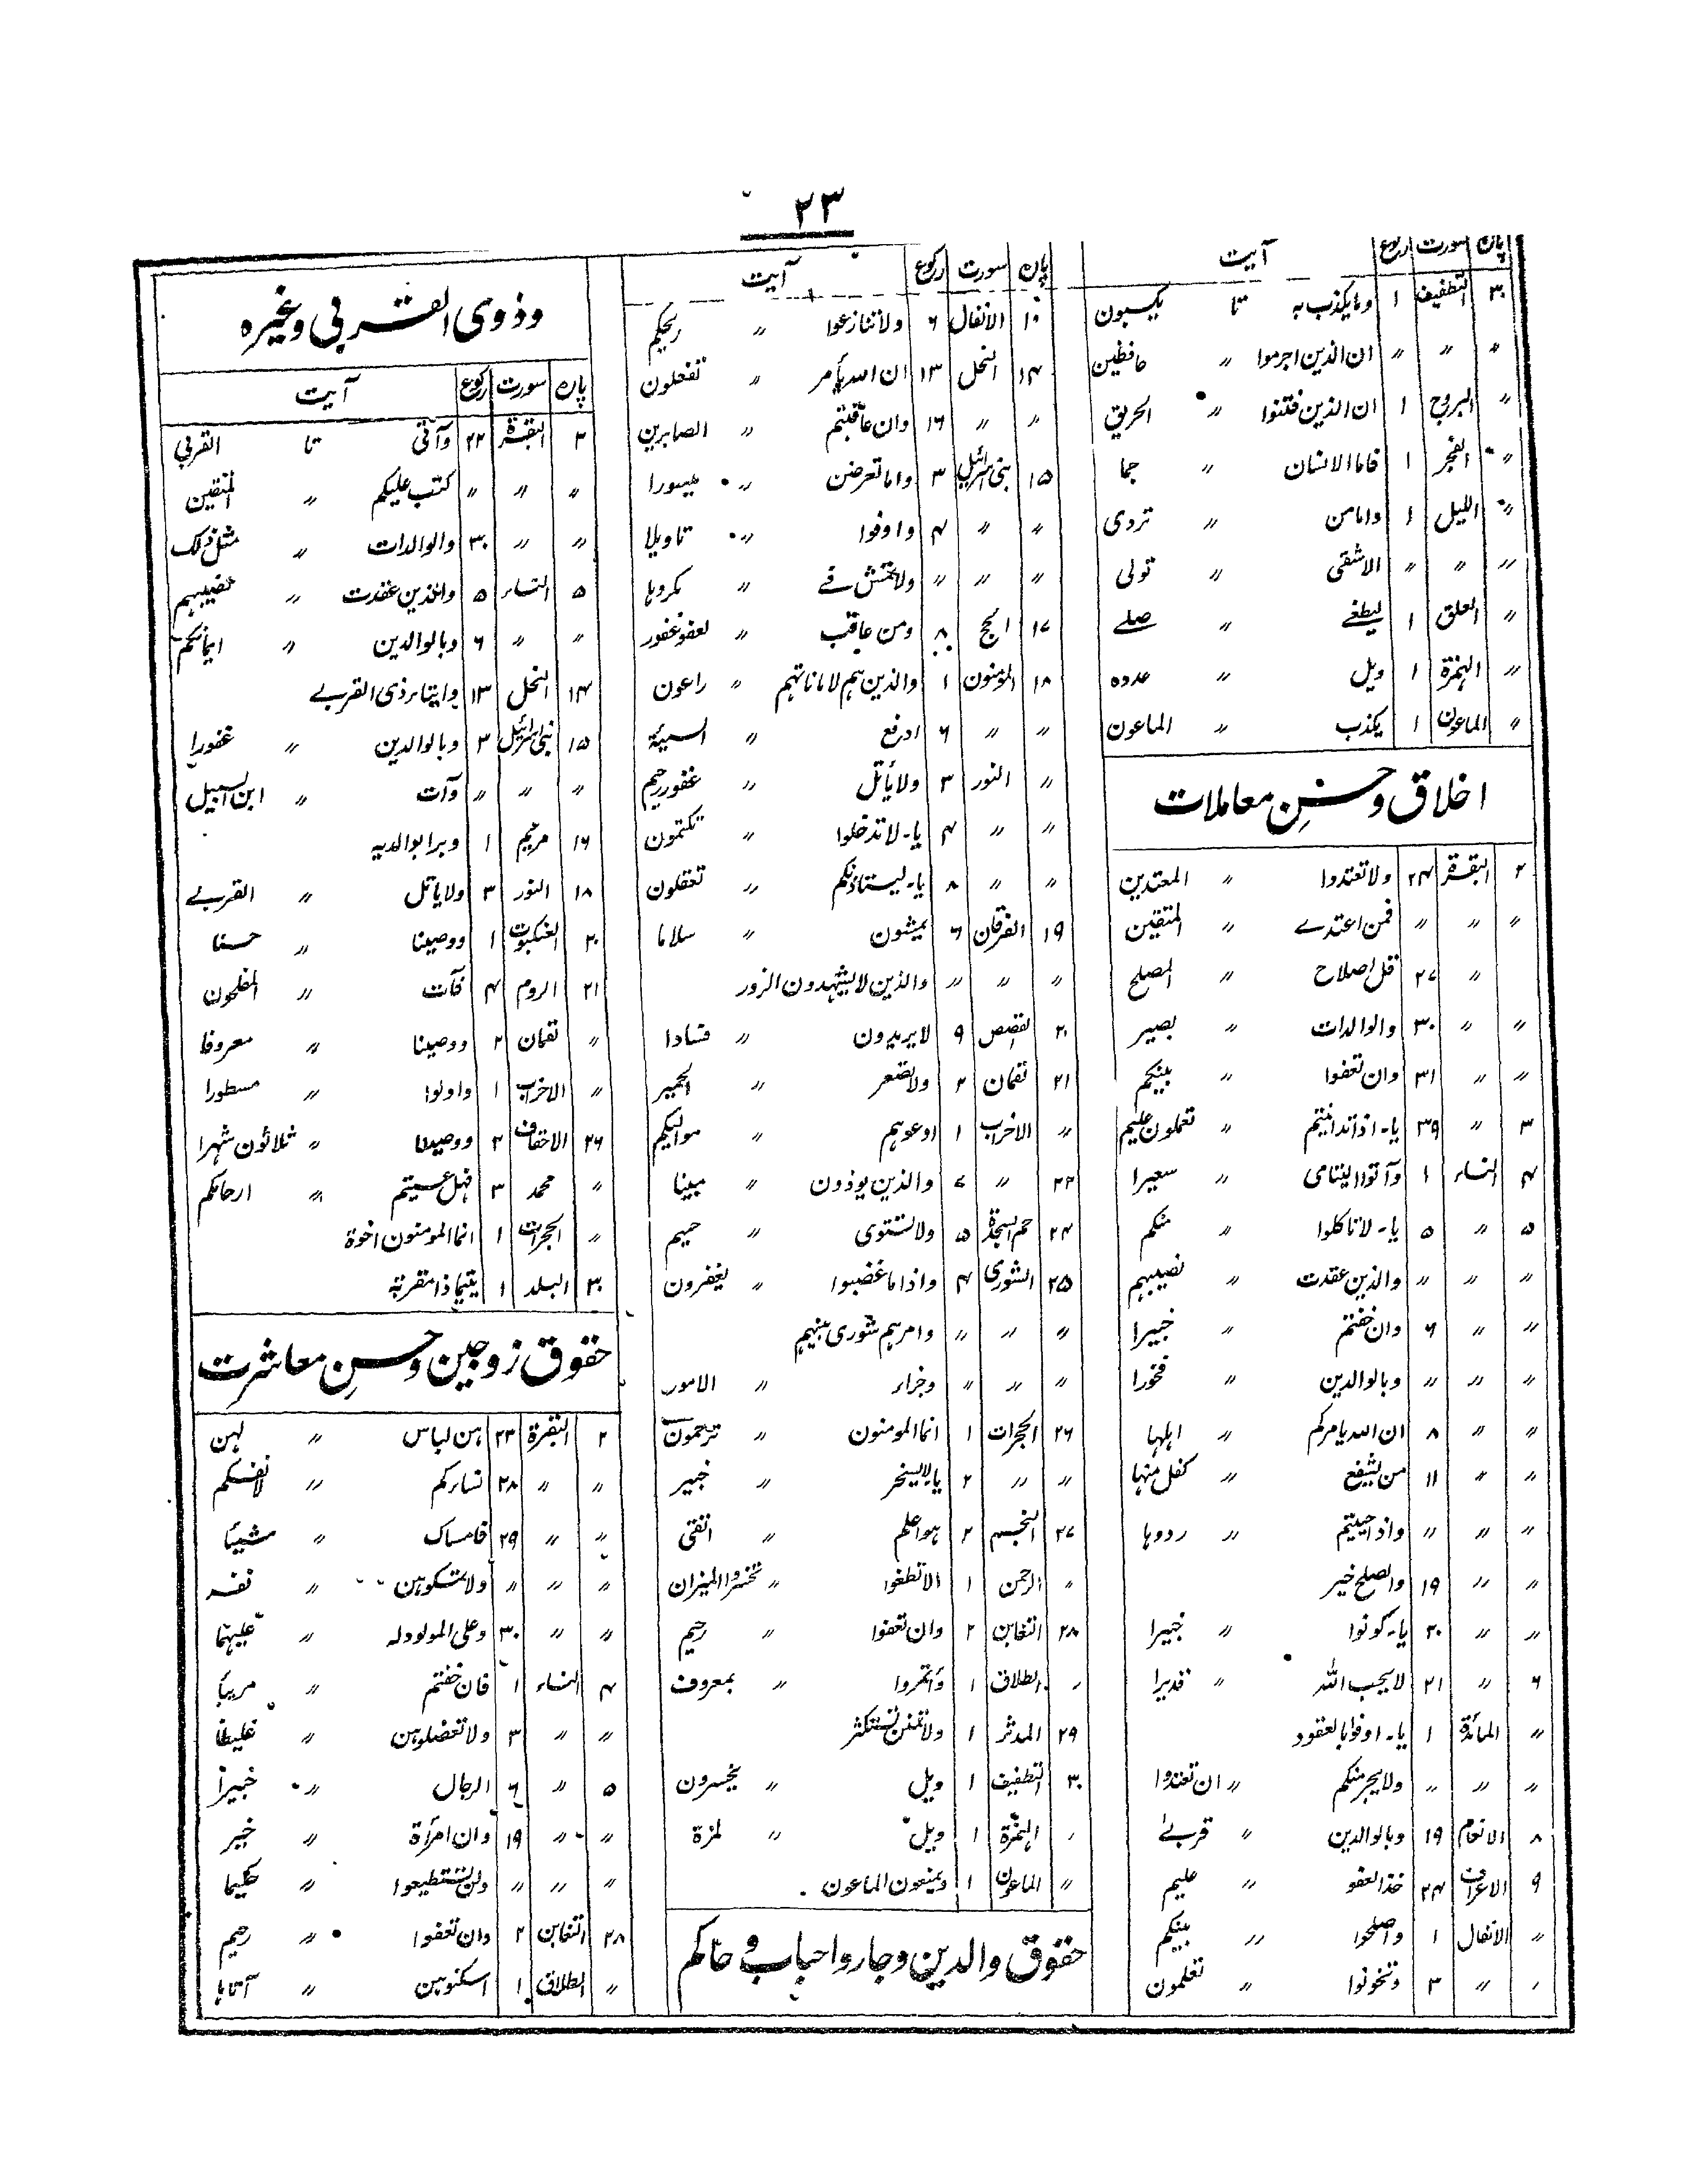 ۲۳
پارہ سورت رکوع آیت
۳۰ التطفیف ۱ وما یکذب بہ تا یکسبون
〃 〃 〃 ان الذین اجرموا 〃 حافظین
〃 البروج ۱ ان الذین فتنوا 〃 الحریق
〃 الفجر ۱ فاما الانسان 〃 جما
〃 اللیل ۱ واما من 〃 تردی
〃 〃 〃 الاشقی 〃 تولی
〃 العلق ۱ لیطغے 〃 صلے
〃 الہمزۃ ۱ ویل 〃 عددہ
〃 الماعون ۱ یکذب 〃 الماعون
اخلاق و حسنِ معاملات
۲ البقرۃ ۲۴ ولا تعتدوا 〃 المعتدین
〃 〃 〃 فمن اعتدے 〃 المتقین
〃 ۲۷ قل اصلاح 〃 المصلح
〃 〃 ۳۰ والوالدات 〃 بصیر
〃 〃 ۳۱ وان تعفوا 〃 بینکم
۳ 〃 ۳۹ یا۔ اذا تداینتم 〃 تعملون علیم
۴ النساء ۱ وآتوا الیتامی 〃 سعیرا
۵ 〃 ۵ یا۔ لا تاکلوا 〃 منکم
〃 〃 〃 والذین عقدت 〃 نصیبہم
〃 〃 ۶ وان خفتم 〃 خبیرا
〃 〃 〃 وبالوالدین 〃 فخورا
〃 〃 ۸ ان اللہ یامرکم 〃 اہلہا
〃 〃 ۱۱ من یشفع 〃 کفل منہا
〃 〃 〃 واذا حییتم 〃 ردوہا
〃 〃 ۱۹ والصلح خیر
〃 〃 ۲۰ یا۔ کونوا 〃 خبیرا
۶ 〃 ۲۱ لا یحب اللہ 〃 قدیرا
〃 المائدۃ ۱ یا۔ اوفوا بالعقود
〃 〃 〃 ولا یجرمنکم 〃 ان تعتدوا
۸ الانعام ۱۹ وبالوالدین 〃 قربےٰ
۹ الاعراف ۲۴ خذ العفو 〃 علیم
〃 الانفال ۱ واصلحوا 〃 بینکم
〃 〃 ۳ وتخونوا 〃 تعلمون
پارہ سورت رکوع آیت
۱۰ الانفال ۶ ولا تنازعوا 〃 ریحکم
۱۴ النحل ۱۳ ان اللہ یأمر 〃 تفعلون
〃 〃 ۱۶ وان عاقبتم 〃 الصابرین
۱۵ بنی اسرائیل ۳ واما تعرضن 〃 میسورا
〃 〃 ۴ واوفوا 〃 تاویلا
〃 〃 〃 ولا تمش فے 〃 مکروہا
۱۷ الحج ۸ ومن عاقب 〃 لعفو غفور
۱۸ المؤمنون ۱ والذین ہم لاماناتہم 〃 راعون
〃 〃 ۶ ادفع 〃 السیئۃ
〃 النور ۳ ولا یأتل 〃 غفور رحیم
〃 〃 ۴ یا۔ لا تدخلوا 〃 تکتمون
〃 〃 ۸ یا۔ لیستاذنکم 〃 تعقلون
۱۹ الفرقان ۶ یمشون 〃 سلاما
〃 〃 〃 والذین لا یشہدون الزور
۲۰ القصص ۹ لا یریدون 〃 فسادا
۲۱ لقمان ۲ ولا تصعر 〃 الحمیر
〃 الاحزاب ۱ ادعوہم 〃 موالیکم
۲۲ 〃 ۷ والذین یوذون 〃 مبینا
۲۴ حم السجدۃ ۵ ولا تستوی 〃 حمیم
۲۵ الشوری ۴ واذا ما غضبوا 〃 یغفرون
〃 〃 〃 وامرہم شوری بینہم
〃 〃 〃 وجزاء 〃 الامور
۲۶ الحجرات ۱ انما المومنون 〃 ترحمون
〃 〃 ۲ یا۔ لا یسخر 〃 خبیر
۲۷ النجم ۲ ہو اعلم 〃 اتقی
〃 الرحمن ۱ الا تطغوا 〃 تخسروا المیزان
۲۸ التغابن ۲ وان تعفوا 〃 رحیم
〃 الطلاق ۱ وأتمروا 〃 بمعروف
۲۹ المدثر ۱ ولا تمنن تستکثر
۳۰ التطفیف ۱ ویل 〃 یخسرون
〃 الہمزۃ ۱ ویل 〃 لمزۃ
〃 الماعون ۱ ویمنعون الماعون
حقوق والدین وجار واحباب و حاکم
وذوی القربی وغیرہ
پارہ سورت رکوع آیت
۲ البقرۃ ۲۲ وآتی تا القربی
〃 〃 〃 کتب علیکم 〃 المتقین
〃 〃 ۳۰ والوالدات 〃 مثل ذلک
۵ النساء ۵ والذین عقدت 〃 نصیبہم
〃 〃 ۶ وبالوالدین 〃 ایمانکم
۱۴ النحل ۱۳ وایتاء ذی القربے
۱۵ بنی اسرائیل ۳ وبالوالدین 〃 غفورا
〃 〃 〃 وآت 〃 ابن السبیل
۱۶ مریم ۱ وبرا بوالدیہ
۱۸ النور ۳ ولا یاتل 〃 القربے
۲۰ العنکبوت ۱ ووصینا 〃 حسنا
۲۱ الروم ۴ فآت 〃 المفلحون
〃 لقمان ۲ ووصینا 〃 معروفا
〃 الاحزاب ۱ واولوا 〃 مسطورا
۲۶ الاحقاف ۲ ووصینا 〃 ثلاثون شہرا
〃 محمد ۳ فہل عسیتم 〃 ارحامکم
〃 الحجرات ۱ انما المومنون اخوۃ
۳۰ البلد ۱ یتیما ذا مقربۃ
حقوق زوجین وحسنِ معاشرت
۲ البقرۃ ۲۳ ہن لباس 〃 لہن
〃 〃 ۲۸ نساءکم 〃 لانفسکم
〃 〃 ۲۹ فامساک 〃 شیئا
〃 〃 〃 ولا تمسکوہن 〃 نفسہ
〃 〃 ۳۰ وعلی المولود لہ 〃 علیہما
۴ النساء ۱ فان خفتم 〃 مریئا
〃 〃 ۳ ولا تعضلوہن 〃 غلیظا
۵ 〃 ۶ الرجال 〃 خبیرا
〃 〃 ۱۹ وان امرأۃ 〃 خیر
〃 〃 〃 ولن تستطیعوا 〃 حکیما
۲۸ التغابن ۲ وان تعفوا 〃 رحیم
〃 الطلاق ۱ اسکنوہن 〃 آتاہا